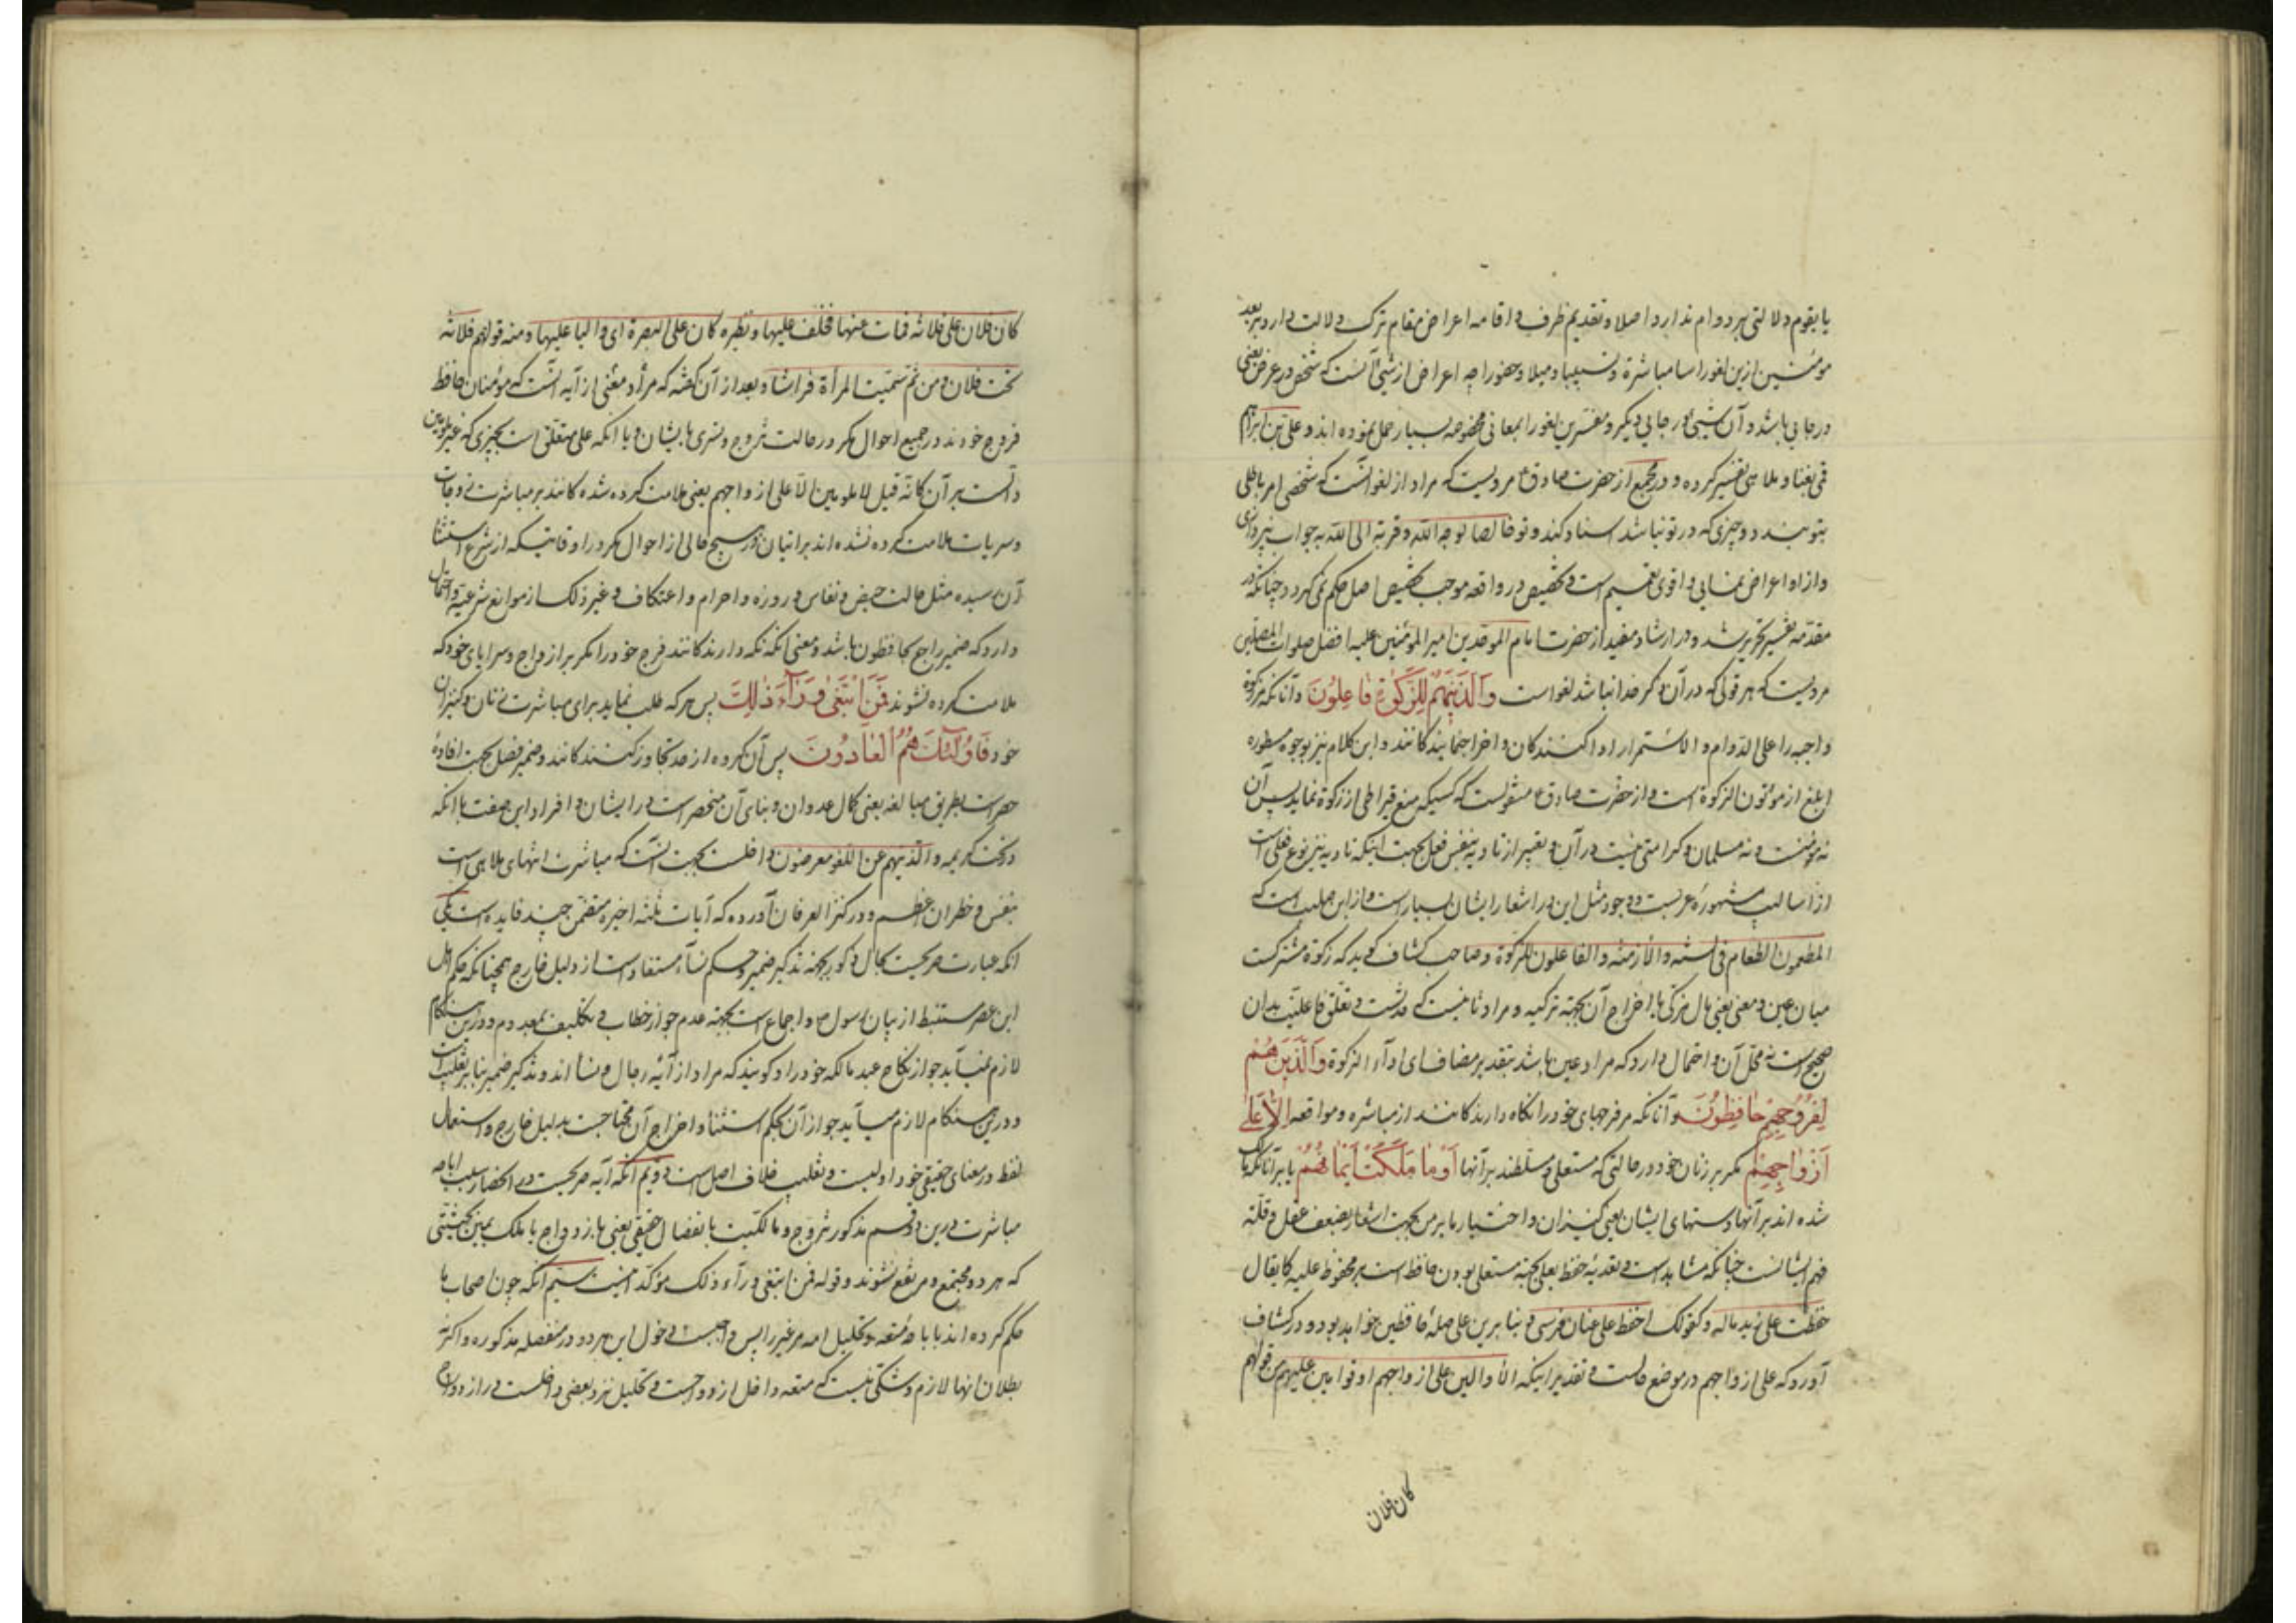 یا یقوم دلالتی بر دوام ندارد اصلا و تقدیم ظرف و اقامه اعراض مقام ترک دلالت دارد بر بعد
مؤمنین ازین لغو راسا مباشرة و تسبیبا و میلا و حضورا چه اعراض از شیئ آنست که شخص در عرض یعنی
در جایی باشد و آن شیئ در جایی دیگر و مفسرین لغو را بمعانی مخصوصه بسیار حمل نموده اند و علی بن ابراهیم
قمی بغنا و ملاهی تفسیر کرده و در مجمع از حضرت صادق ع مرویست که مراد از لغو آنست که شخصی امر باطلی
بتو بندد و چیزی که در تو نباشد اسناد کند و تو خالصا لوجه الله و قربة الی الله بجواب نپردازی
و از او اعراض نمایی و اقوی تعمیم است و تخصیص در واقعه موجب تخصیص اصل حکم نمی گردد چنانکه در
مقدمه تفسیر تحریر شد و در ارشاد مفید از حضرت امام الموحدین امیر المؤمنین علیه افضل صلوات المصلین
مرویست که هر قولی که در آن ذکر خدا نباشد لغو است وَالَّذِینَ هُمْ لِلزَّکوٰةِ فَاعِلُونَ و آنانکه مر زکوة
واجبه را علی الدوام و الاستمرار ادا کنندگان و اخراج نمایندگانند و این کلام نیز بوجوه مسطوره
ابلغ از مؤتون الزکوة است و از حضرت صادق ع منقولست که کسیکه منع قیراطی از زکوة نماید پس آن
نه مؤمنست و نه مسلمان و کرامتی نیست در آن و تعبیر از تادیه بنفس فعل بجهت اینکه تادیه نیز نوع فعلی است
از اسالیب مشهوره عربست و وجود مثل این در اشعار ایشان بسیار است و از این جمله است که
المطعمون الطعام فی السنة و الأزمنه و الفاعلون للزکوة و صاحب کشاف گوید که زکوة مشترکست
میان عین و معنی یعنی مال مزکی با اخراج آن بجهة تزکیه و مراد ثانیست که حدثست و تعلق فاعلیت بدان
صحیح است نه محل آن و احتمال دارد که مراد عین باشد بتقدیر مضاف ای اداء الزکوة وَالَّذِینَ هُمْ
لِفُرُوجِهِمْ حَافِظُونَ و آنانکه مر فرجهای خود را نگاه دارندگانند از مباشره و مواقعه اِلّٰا عَلیٰ
اَزْوَاجِهِمْ مگر بر زنان خود در حالتی که مستعلی و مسلطند بر آنها اَوْ مٰا مَلَکَتْ اَیْمَانُهُمْ یا بر آنانکه مالک
شده اند بر آنها دستهای ایشان یعنی کنیزان و اختیار ما بر من بجهت اشعار بضعف عقل و قلة
فهم ایشانست چنانکه مشاهد است و تعدیه حفظ بعلی بجهة مستعلی بودن حافظ است بر محفوظ علیه کما یقال
حفظت علی زید ماله و کقولک احفظ علی عنان فرسی و بنابرین علی صله حافظین خواهد بود و در کشاف
آورد که علی ازواجهم در موضع حالست و تقدیر اینکه الا والین علی ازواجهم او قوامین علیهم من قولهم
کان فلان
کان فلان علی فلانه فمات عنها فخلف علیها و نظیره کان علی البصرة ای والیا علیها و منه قولهم فلانه
تحت فلان و من ثم سمیت المرأة فراشا و بعد از آن گفته که مراد و معنی از آیه آنست که مؤمنان حافظ
فروج خودند در جمیع احوال مگر در حالت تزوج و تسری بایشان و یا آنکه علی متعلق است بچیزی که غیر ملومین
دالست بر آن کانه قیل لا ملومین الا علی ازواجهم یعنی ملامت کرده شده گانند بر مباشرت زوجات
و سریات ملامت کرده نشده اند بر اتیان در هیچ حالی از احوال مگر در اوقاتیکه از شرع استثنا
آن رسیده مثل حالت حیض و نفاس و روزه و احرام و اعتکاف و غیر ذلک از موانع شرعیه و احتمال
دارد که ضمیر راجع بحافظون باشد و معنی آنکه نگه دارندگانند فرج خود را مگر بر ازواج و سرایای خود که
ملامت کرده نشوند فَمَنِ ابْتَغیٰ وَرٰاءَ ذٰلِکَ پس هر که طلب نماید برای مباشرت زنان و کنیزان
خود فَاُولٰئِکَ هُمُ الْعَادُونَ پس آن گروه از حد تجاوز کنندگانند و ضمیر فصل بجهت افاده
حصر است بطریق مبالغه یعنی کمال عدوان و بنای آن منحصر است در ایشان و افراد این صفت با آنکه
در تحت کریمه و الذین هم عن اللغو معرضون داخلست بجهت آنست که مباشرت انتهای ملاهی است
بنفس و خطر آن اعظم و در کنز العرفان آورده که آیات ثلثه اخیره متضمن چند فایده است یکی
آنکه عبارت صریحست بحال ذکور بجهة تذکیر ضمیر و حکم نساء مستفاد است از دلیل خارج همچنانکه حکم اهل
این عصر مستنبط از بیان رسول ص و اجماع است بجهة عدم جواز خطاب و تکلیف بمعدوم و درین هنگام
لازم نمیآید جواز نکاح عبد مالکه خود را و گویند که مراد از آیه رجال و نسا اند و تذکیر ضمیر بنا بر تغلیب است
و درین هنگام لازم میآید جواز آن بحکم استثنا و اخراج آن محتاجست بدلیل خارج و استعمال
لفظ در معنای حقیقی خود اولیست و تغلیب خلاف اصل است دویم آنکه آیه صریحست در انحصار سبب اباحه
مباشرت درین دو قسم مذکور تزوج و مالکیت بانفصال حقیقی یعنی بازدواج یا بملک یمین بحیثیتی
که هر دو مجتمع و مرتفع نشوند و قوله فمن ابتغی وراء ذلک مؤکد اینست سیم آنکه چون اصحاب ما
حکم کرده اند باباحه متعه و تحلیل امه مر غیر را پس واجبست دخول این هر دو در منفصله مذکوره و اگر نه
بطلان انها لازم و شکی نیست که متعه داخل ازدواجست و تحلیل نزد بعضی داخلست در ازدواج